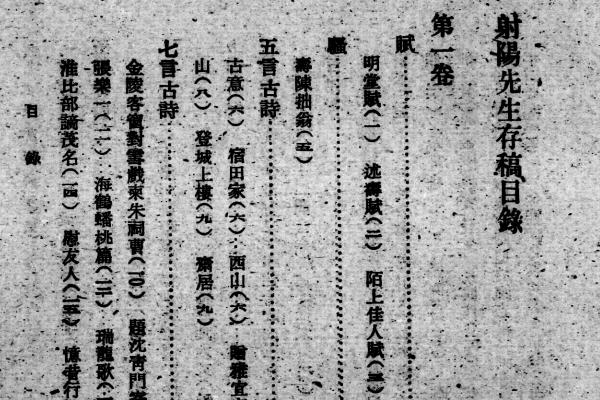 射陽先生存稿目錄
第一卷
賦
明堂賦(一) 述壽賦(二) 陌上佳人賦(三)
騷
壽陳拙翁(五)
五言古詩
古意(六) 宿田家(六) 西山(六) 贈雅宜
山(八) 登城上樓(九) 齋居(九)
七言古詩
金陵客窗對雪戲柬朱祠曹(一〇) 題沈青門
張樂一(一一) 海鶴蟠桃篇(一三) 瑞龍歌
淮比部謫茂名(一四) 慰友人(一五) 憶昔行
目 錄